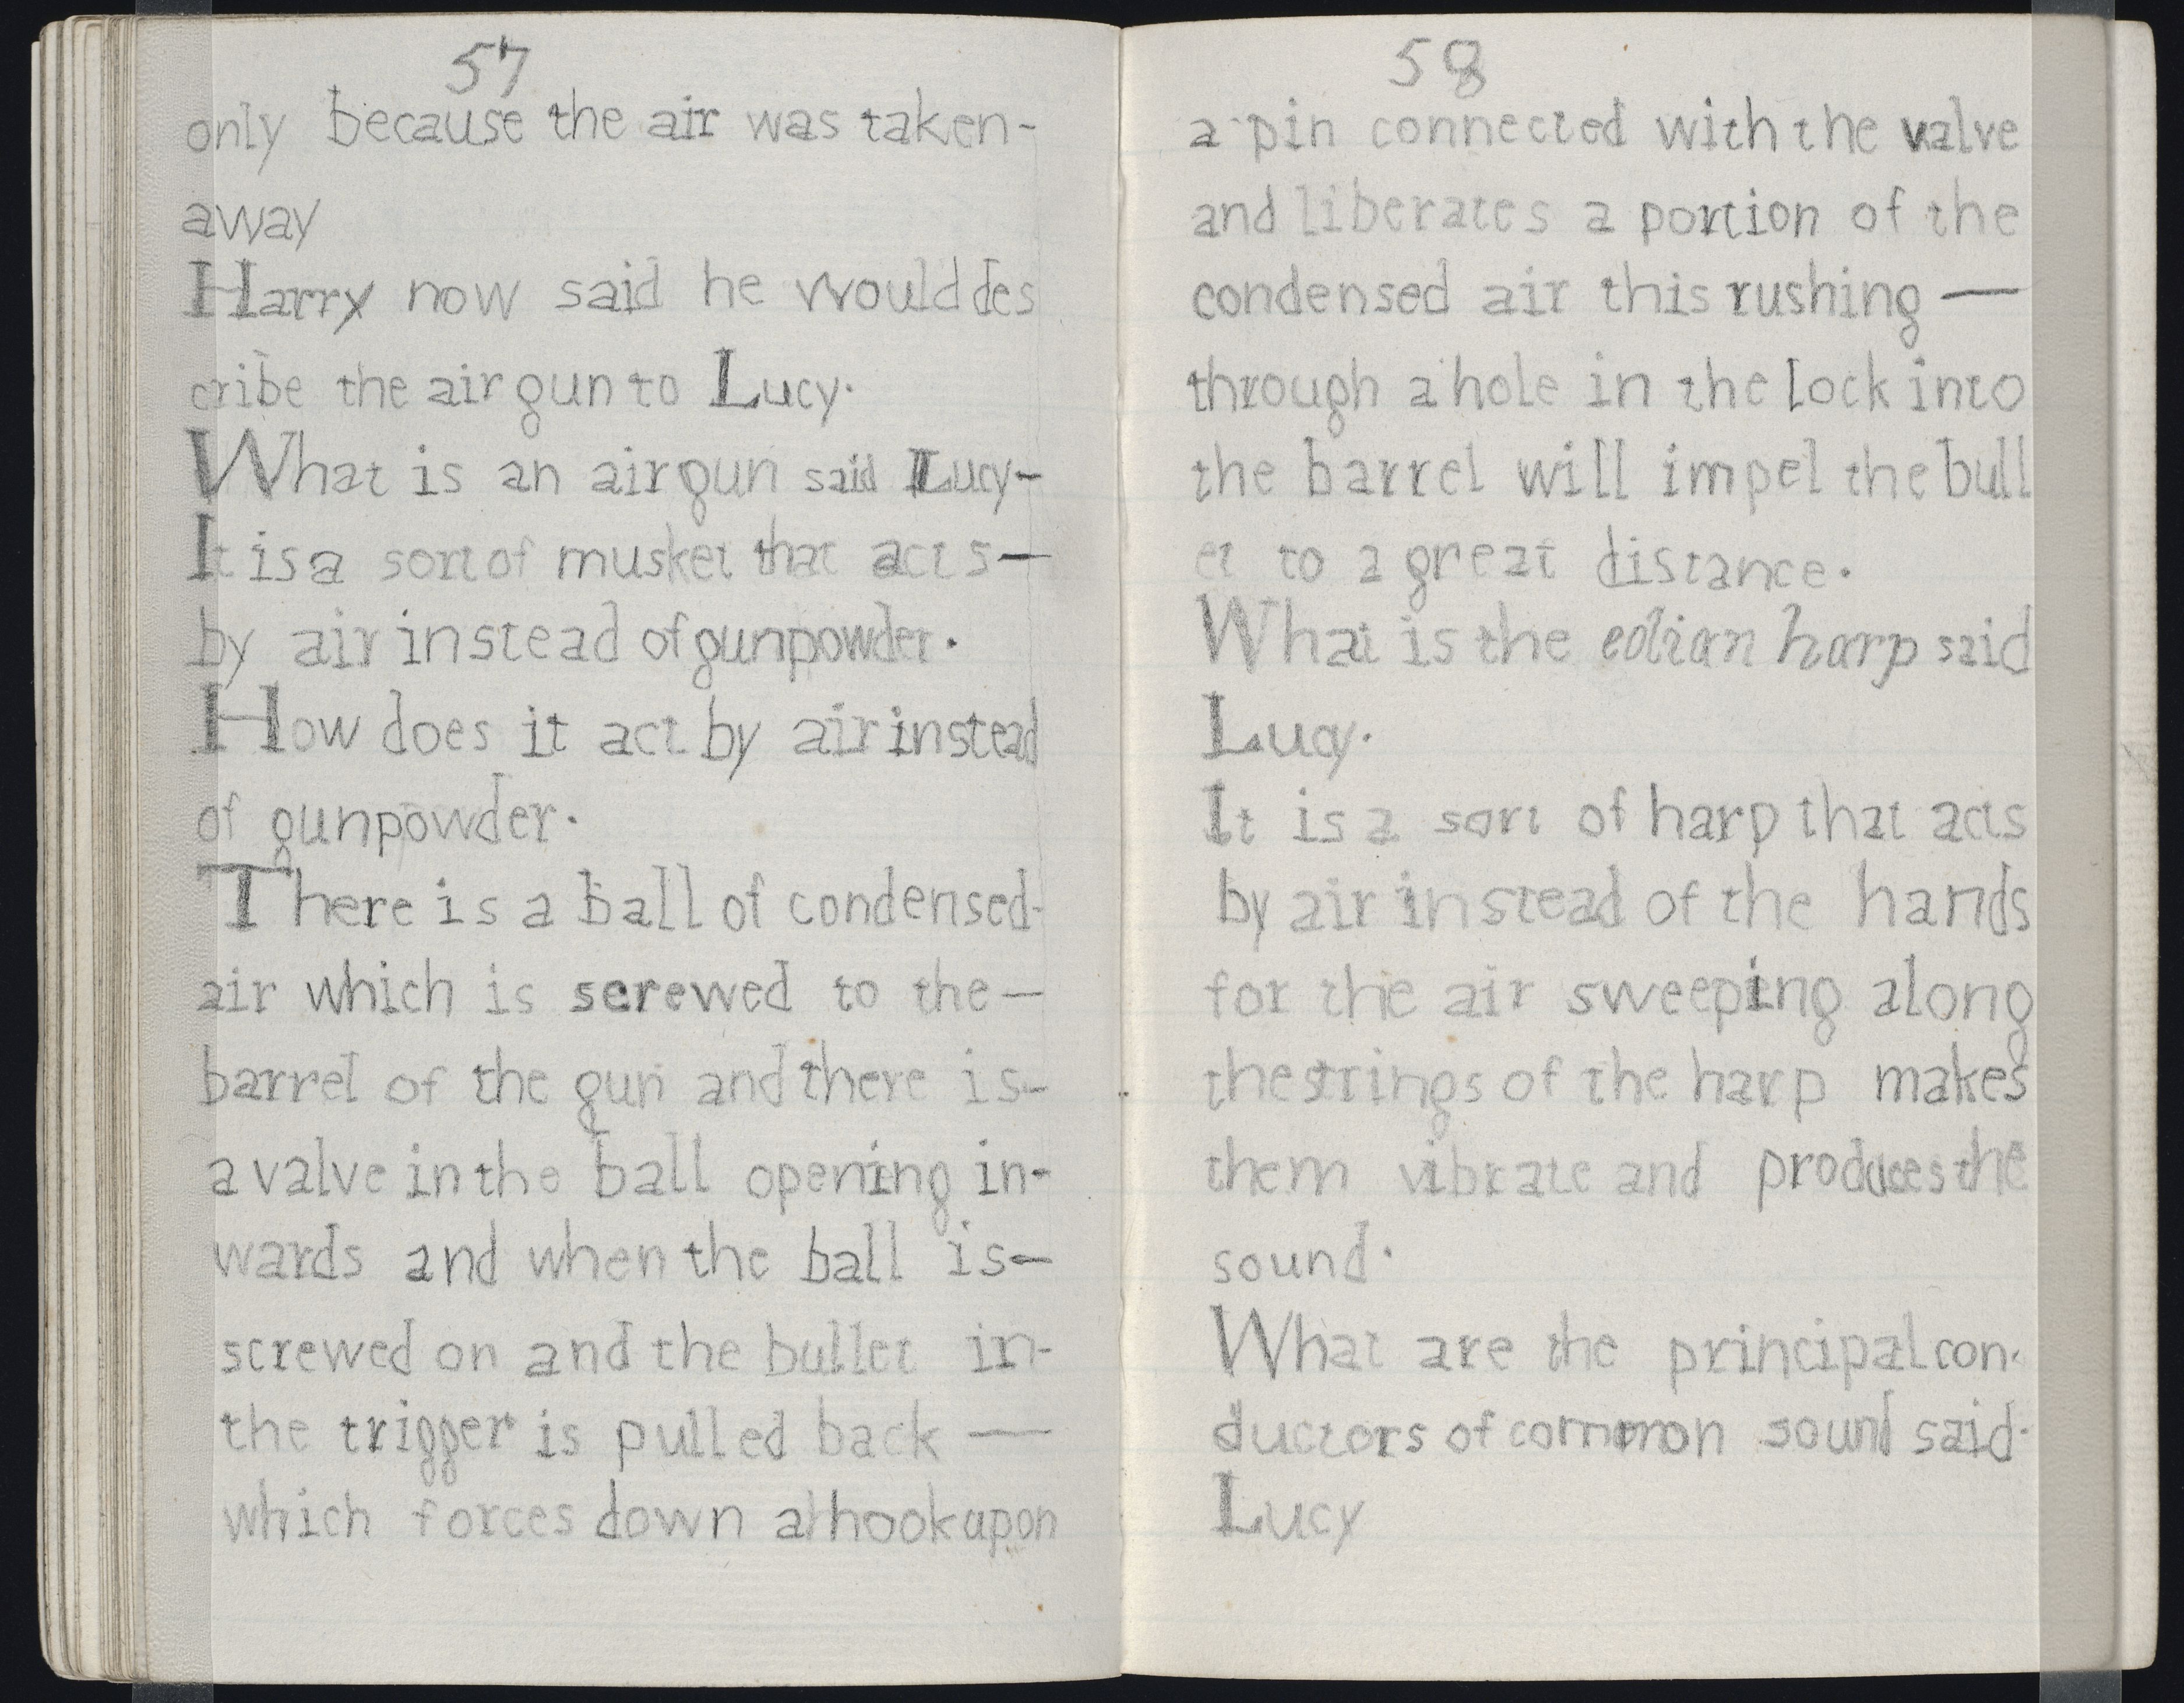 57
only because the air was taken-
away
Harry now said he would des
cribe the air gun to Lucy.
What is an air gun said Lucy-
It is a sort of musket that acts—
by air instead of gunpowder.
How does it act by air instead
of gunpowder.
There is a ball of condensed-
air which is screwed to the—
barrel of the gun and there is-
a valve in the ball opening in-
wards and when the ball is—
screwed on and the bullet in-
the trigger is pulled back —
which forces down a hook upon
58
a pin connected with the valve
and liberates a portion of the
condensed air this rushing —
through a hole in the lock into
the barrel will impel the bull
et to a great distance.
What is the eolian harp said
Lucy.
It is a sort of harp that acts
by air instead of the hands
for the air sweeping along
the strings of the harp makes
them vibrate and produces the
sound.
What are the principal con-
ductors of common sound said-
Lucy